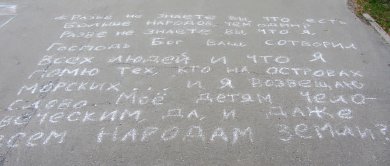 «Разве не знаете вы, что есть
больше народов, чем один?
Разве не знаете вы, что Я,
Господь Бог ваш сотворил
всех людей и что я
помню тех, кто на островах
морских... и я возвещаю
слово Моё детям чело-
веческим, да, и даже
всем народам земли?